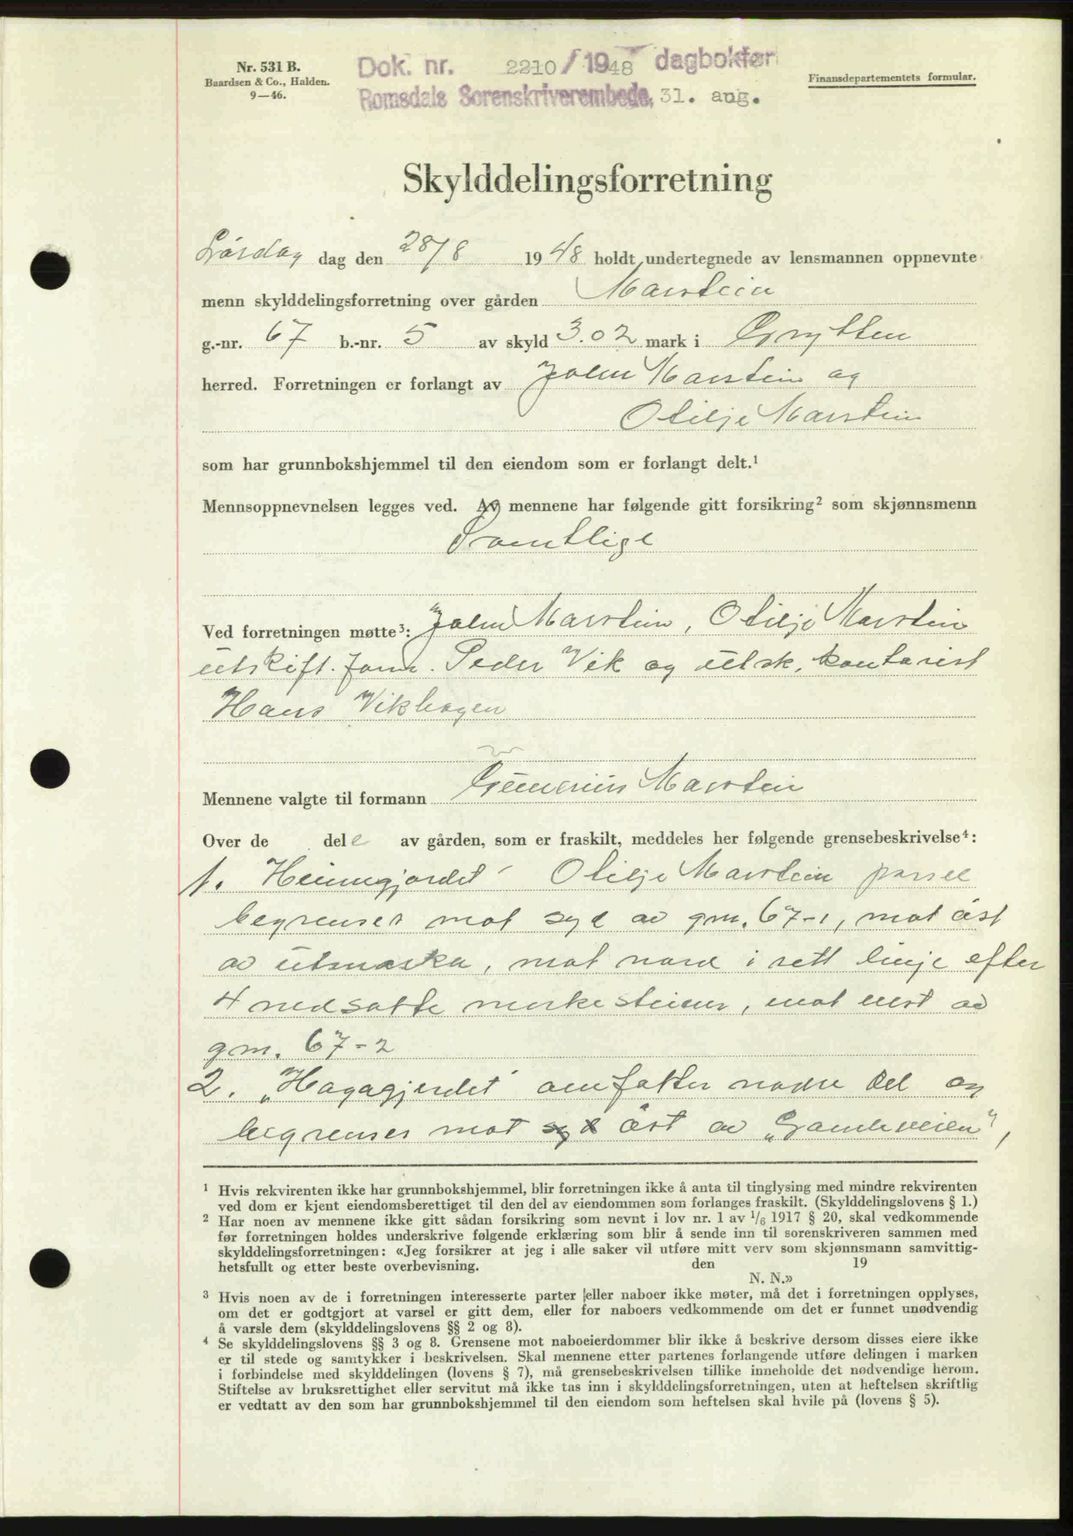 Nr. 531 B.
Baardsen & Co., Halden.
9—46.
Dok. nr. 2210 / 1948 dagbokfør
Romsdals Sorenskriverembede, 31. aug.
Finansdepartementets formular.
Skylddelingsforretning
Lørdag dag den 28/8 1948 holdt undertegnede av lensmannen oppnevnte
menn skylddelingsforretning over gården Marstein
g.-nr. 67 b.-nr. 5 av skyld 3.02 mark i Grytten
herred. Forretningen er forlangt av John Marstein og
Otilje Marstein
som har grunnbokshjemmel til den eiendom som er forlangt delt.¹
Mennsoppnevnelsen legges ved. Av mennene har følgende gitt forsikring² som skjønnsmenn
Samtlige
Ved forretningen møtte³: John Marstein, Otilje Marstein
utskift. form. Peder Vik og utsk. kontorist
Hans Vikhagen
Mennene valgte til formann Gunerius Marstein
Over de dele av gården, som er fraskilt, meddeles her følgende grensebeskrivelse⁴:
1. Heimgjordet Otilje Marstein parsel
begrenses mot syd av gnr. 67-1, mot øst
av utmaska, mot nord i rett linje efter
4 nedsatte merkesteiner, mot vest av
gnr. 67-2
2. „Hagagjerdet" omfatter nordre del og
begrenses mot øst av „Gamleveien",
¹ Hvis rekvirenten ikke har grunnbokshjemmel, blir forretningen ikke å anta til tinglysing med mindre rekvirenten
ved dom er kjent eiendomsberettiget til den del av eiendommen som forlanges fraskilt. (Skylddelingslovens § 1.)
² Har noen av mennene ikke gitt sådan forsikring som nevnt i lov nr. 1 av 1/6 1917 § 20, skal vedkommende
før forretningen holdes underskrive følgende erklæring som blir å sende inn til sorenskriveren sammen med
skylddelingsforretningen: «Jeg forsikrer at jeg i alle saker vil utføre mitt verv som skjønnsmann samvittig-
hetsfullt og etter beste overbevisning. den 19
N. N.»
³ Hvis noen av de i forretningen interesserte parter eller naboer ikke møter, må det i forretningen opplyses,
om det er godtgjort at varsel er gitt dem, eller for naboers vedkommende om det er funnet unødvendig
å varsle dem (skylddelingslovens §§ 2 og 8).
⁴ Se skylddelingslovens §§ 3 og 8. Grensene mot naboeierdommer blir ikke å beskrive dersom disses eiere ikke
er til stede og samtykker i beskrivelsen. Skal mennene etter partenes forlangende utføre delingen i marken
i forbindelse med skylddelingen (lovens § 7), må grensebeskrivelsen tillike inneholde det nødvendige herom.
Stiftelse av bruksrettighet eller servitut må ikke tas inn i skylddelingsforretningen, uten at heftelsen skriftlig
er vedtatt av den som har grunnbokshjemmel til den eiendom som heftelsen skal hvile på (lovens § 5).